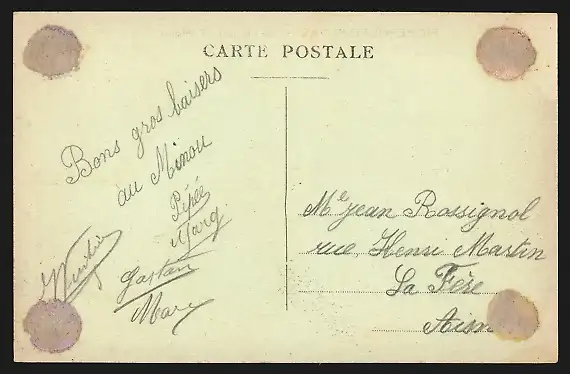 CARTE POSTALE
Bons gros baisers
au Minou
Pépée
Marg
Gaston
Marc
Mle Jean Rossignol
rue Henri Martin
La Fère
Aisn